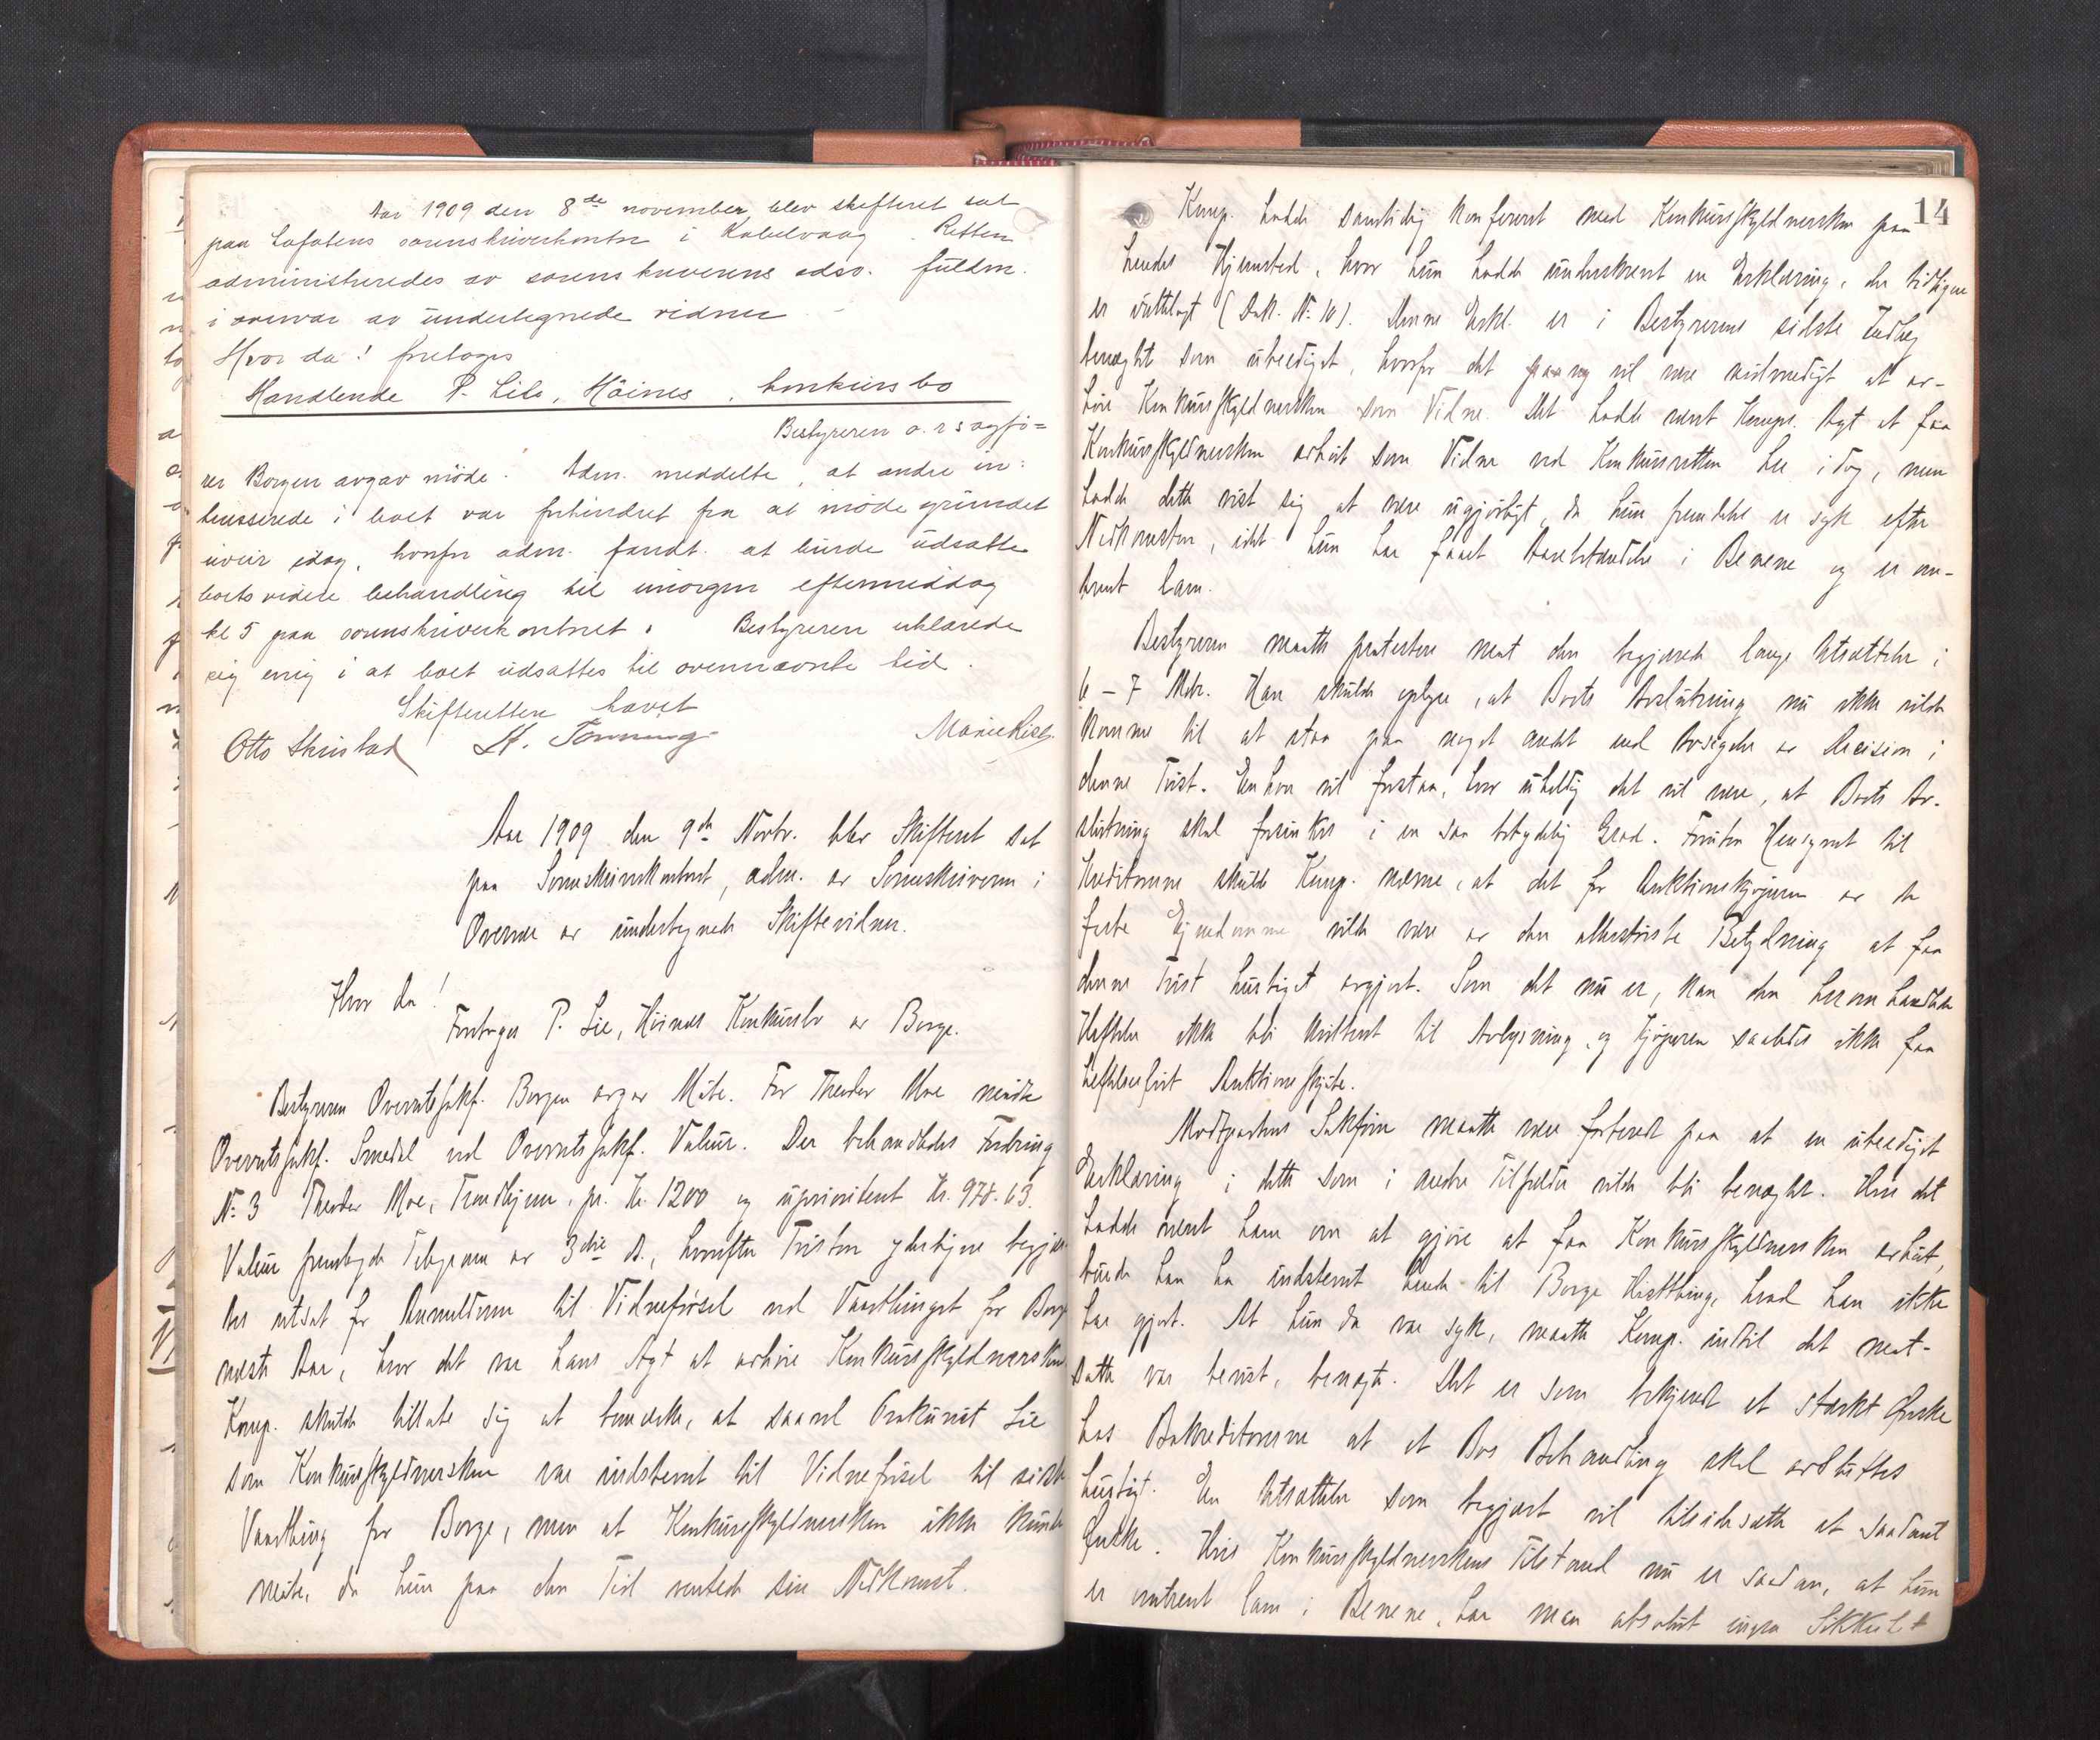 Aar 1909 den 8de november, blev skifteret sat
paa Lofotens sorenskriverkontor i Kabelvaag. Retten
administreredes av sorenskriverens edsv. fuldm.
i overvær av undertegnede vidner
Hvor da! foretoges
Handlende P. Lies, Höines, konkursbo
Bestyreren o.r.sagfö=
rer Borgen avgav möde. Adm. meddelte, at andre in=
teresserede i boet var forhindret fra at möde grundet
uveir idag, hvorfor adm. fandt at burde udsætte
boets videre behandling til imorgen eftermiddag
kl 5 paa sorenskriverkontoret. Bestyreren erklærede
sig enig i at boet udsættes til ovennævnte tid.
Skifteretten hævet
Otto Skrustad K. Tønning Marie
Aar 1909 den 9de Novbr. blev Skifteret sat
paa Sorenskriverkontoret, adm. av Sorenskriveren i
Overvær av undertegnede Skiftevidner.
Hvor da!
Foretoges P. Lie, Höines Konkursbo av Borge.
Bestyreren Overretssakf. Borgen avgav Möte. For Theodor Moe mödte
Overretssakf. Smedal ved Overretssakf. Valeur. Der behandledes Fordring
No 3 Theodor Moe, Trondhjem, pr. Kr. 1200 og uprioritert Kr. 978.63.
Valeur fremlagde Telegram av 3die ds., hvorefter Tvisten yderligere begjær
des utsat for Anmelderen til Vidneførsel ved Vaartinget for Borge
næste Aar, hvor det var hans Agt at avhöre Konkursskyldnersken.
Komp. skulde tillate sig at bemærke, at saavel Prokurist Lie
som Konkursskyldnersken var indstevnt til Vidneførsel til sidste
Vaarthing for Borge, men at Konkursskyldnersken ikke kunde
möte, da hun paa den Tid ventede sin Nedkomst.
14
Komp. hadde samtidig konferert med Konkursskyldnersken paa
hendes Hjemsted, hvor hun hadde underskrevet en Erklæring, der tidligere
er utlagt (Dok. No 10). Denne Erkl. er i Bestyrerens sidste Indlæg
benægtet som ubeediget, hvorfor det paany vil være nödvendigt at av-
höre Konkursskyldnersken som Vidne. Det hadde været Komps. Agt at faa
Konkursskyldnersken avhört som Vidne ved Konkursretten her i dag, men
hadde dette vist sig at være ugjörligt, da hun fremdeles er syk efter
Nedkomsten, idet hun har faaet Aarebetændelse i Benene og er om-
trent lam.
Bestyreren maatte protestere mot den begjærede lange Utsættelse i
6 – 7 Mdr. Han skulde oplyse, at Boets Avslutning nu ikke vilde
komme til at staa paa noget andet end Avsigelse av Decision i
denne Tvist. Enhver vil forstaa, hvor uheldig det vil være, at Boets Av-
slutning skal forsinkes i en saa betydelig Grad. Foruten Hensynet til
Kreditorerne skulde Komp. nævne, at det for Auktionskjöperen av de
faste Ejendomme vilde være av den allerstörste Betydning at faa
denne Tvist hurtigst avgjort. Som det nu er, kan den herom handlende
Heftelse ikke bli kvittert til Avlysning, og Kjöperen saaledes ikke faa
heftelsesfrit Auktionsskjöte.
Modpartens Sakförer maatte være forberedt paa at en ubeediget
Erklæring i dette som i andre Tilfælder vilde bli benægtet. Hvis det
hadde været ham om at gjöre at faa Konkursskyldnersken avhört,
burde han ha indstevnt hende til Borge Höstthing, hvad han ikke
har gjort. At hun da var syk, maatte Komp. indtil det mot-
satte var bevist, benægte. Det er som bekjendt et stærkt Önske
hos Bokreditorerne at et Bos Behandling skal avsluttes
hurtigst. En Utsættelse som begjært vil tilsidesætte et saadant
Önske. Hvis Konkursskyldnerskens Tilstand nu er saadan, at hun
er omtrent lam i Benene, har man absolut ingen Sikkerhet